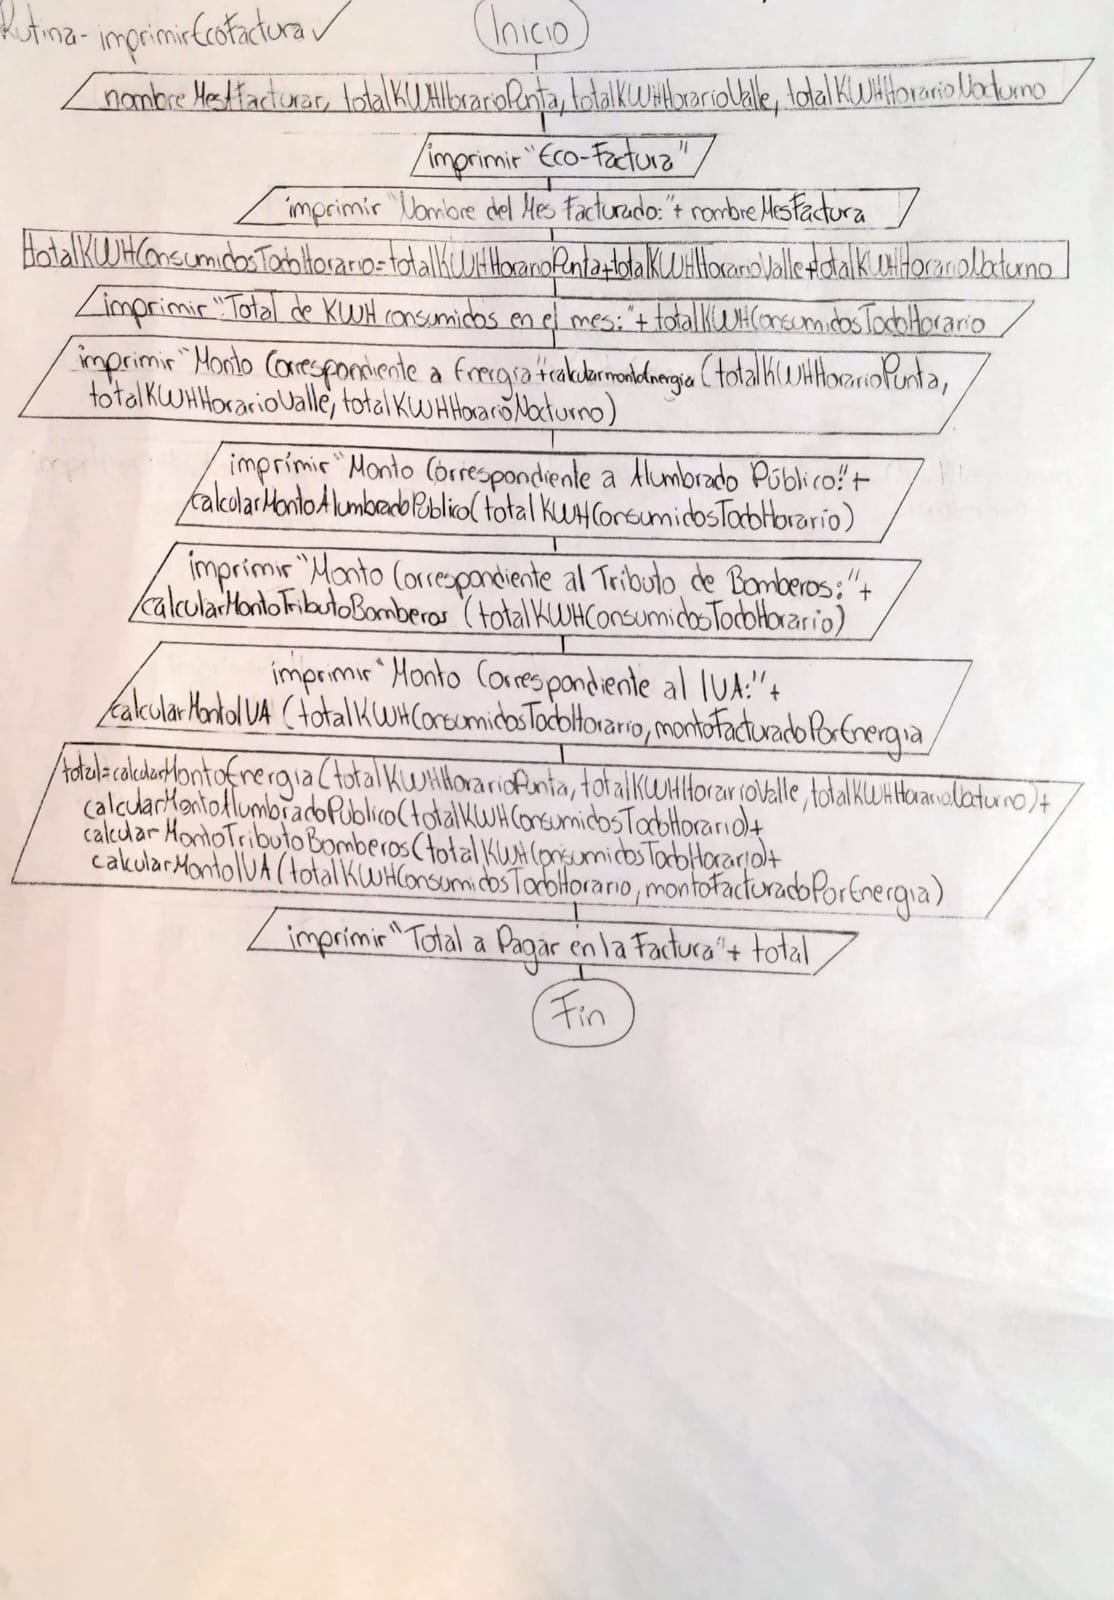 Rutina- imprimirEcoFactura ✓
Inicio
nombreMesAFacturar, totalKWHHorarioPunta, totalKWHHorarioValle, totalKWHHorarioNocturno
imprimir "Eco-Factura"
imprimir "Nombre del Mes Facturado:"+ nombreMesFactura
totalKWHConsumidosTodoHorario=totalKWHHorarioPunta+totalKWHHorarioValle+totalKWHHorarioNocturno
imprimir "Total de KWH consumidos en el mes:"+ totalKWHConsumidosTodoHorario
imprimir "Monto Correspondiente a Energía"+calcularmontoEnergia(totalKWHHorarioPunta,
totalKWHHorarioValle, totalKWHHorarioNocturno)
imprimir "Monto Correspondiente a Alumbrado Público:"+
calcularMontoAlumbradoPúblico(totalKWHConsumidosTodoHorario)
imprimir "Monto Correspondiente al Tributo de Bomberos:"+
calcularMontoTributoBomberos (totalKWHConsumidosTodoHorario)
imprimir "Monto Correspondiente al IVA:"+
calcularMontoIVA (totalKWHConsumidosTodoHorario, montoFacturadoPorEnergia
total=calcularMontoEnergia(totalKWHHorarioPunta, totalKWHHorarioValle, totalKWHHorarioNocturno)+
calcularMontoAlumbradoPúblico(totalKWHConsumidosTodoHorario)+
calcularMontoTributoBomberos(totalKWHConsumidosTodoHorario)+
calcularMontoIVA(totalKWHConsumidosTodoHorario, montoFacturadoPorEnergia)
imprimir "Total a Pagar en la Factura"+ total
Fin